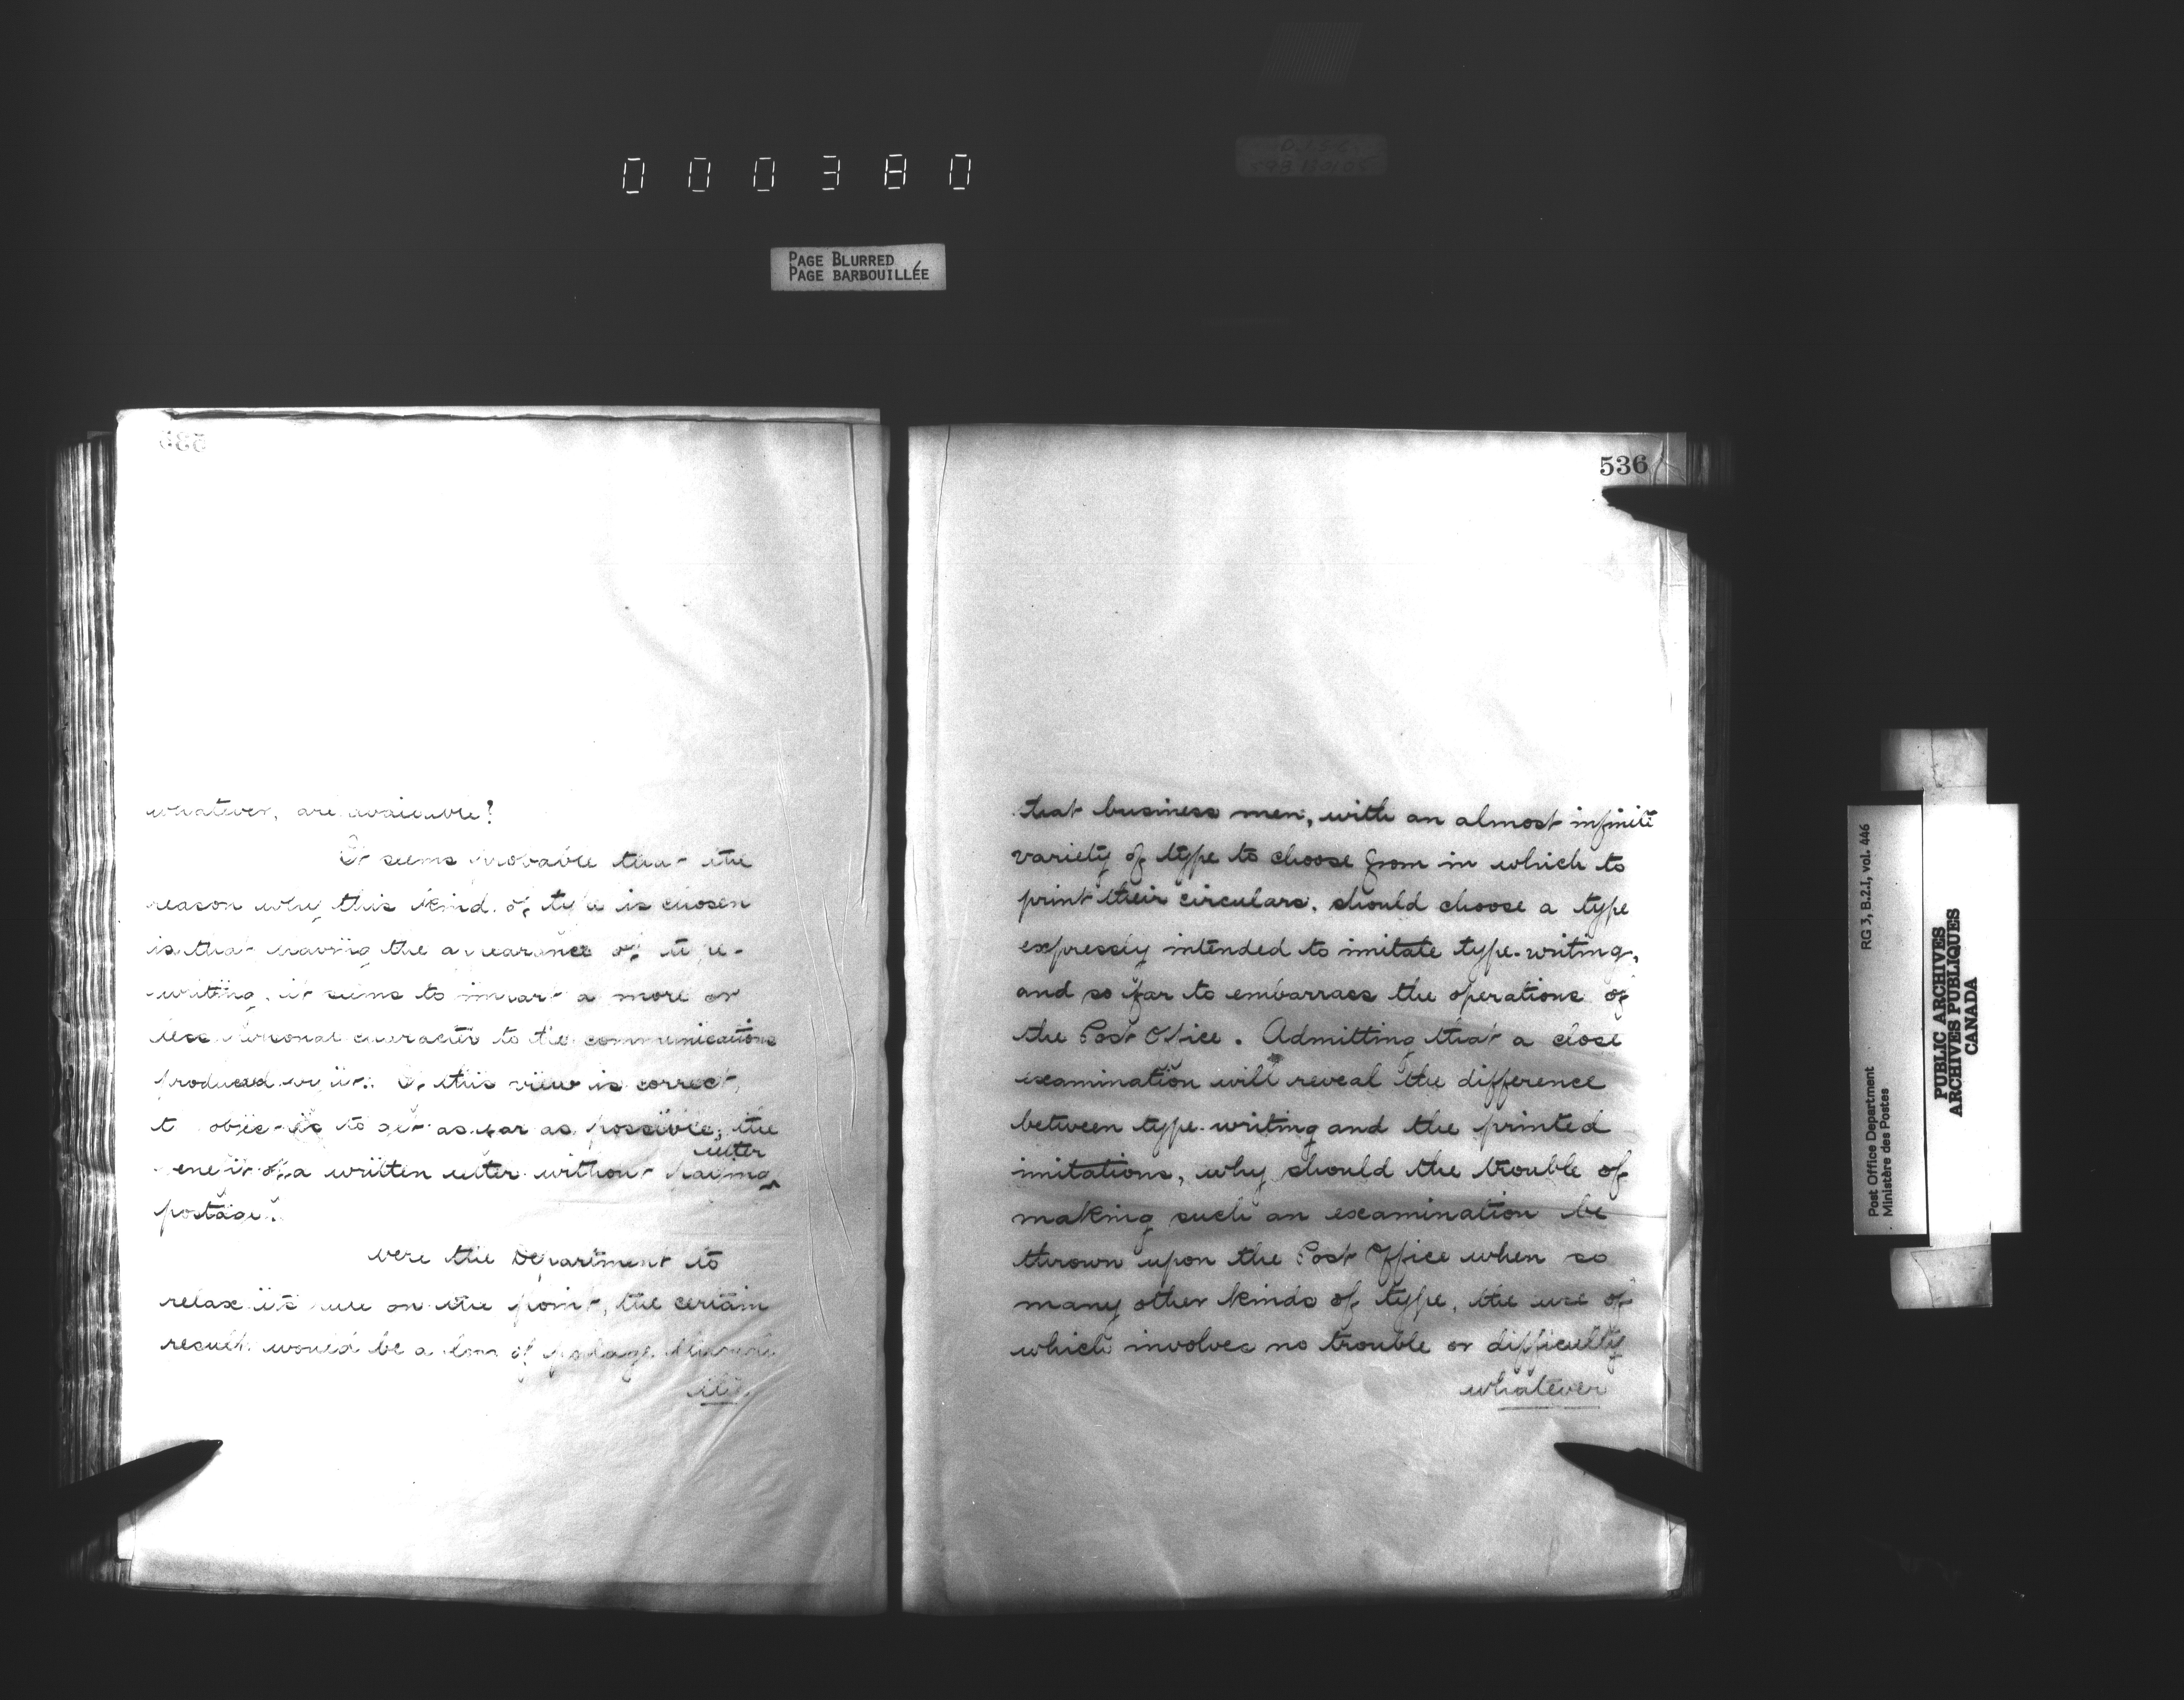 000380
PAGE BLURRED
PAGE BARBOUILLÉE
535
whatever, are available?
It seems probable that the
reason why this kind of type is chosen
is that having the appearance of type-
writing, it seems to impart a more or
less personal character to the communications
produced by it. If this view is correct,
the object is to get as far as possible, the
letter
benefit of a written letter without paying
postage.
Were the Department to
relax its rule on the point, the certain
result would be a loss of postage
536
that business men, with an almost infinite
variety of type to choose from in which to
print their circulars, should choose a type
expressly intended to imitate type-writing,
and so far to embarrass the operations of
the Post Office. Admitting that a close
examination will reveal the difference
between type-writing and the printed
imitations, why should the trouble of
making such an examination be
thrown upon the Post Office when so
many other kinds of type, the use of
which involves no trouble or difficulty
whatever
RG 3, B.2.1, vol. 446
Post Office Department
Ministère des Postes
PUBLIC ARCHIVES
ARCHIVES PUBLIQUES
CANADA